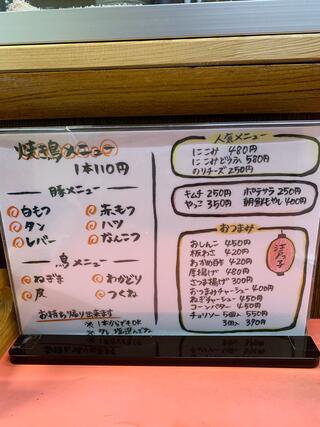 焼鳥メニュー
1本110円
豚メニュー
白もつ 赤もつ
タン ハツ
レバー なんこつ
鳥メニュー
ねぎま わかどり
皮 つくね
お持ち帰り出来ます
※ 1本からでもOK
※ タレ 塩選んで下さい
人気メニュー
にこみ 480円
にこみどうふ 580円
のりチーズ 250円
キムチ 250円 ポテサラ 250円
やっこ 350円 朝鮮もやし 400円
おつまみ
おしんこ 450円
板わさ 420円
わかめ酢 420円
厚揚げ 480円
さつま揚げ 300円
おつまみチャーシュー 400円
ねぎチャーシュー 450円
コーンバター 450円
チョリソー 5個入 550円
3個入 390円